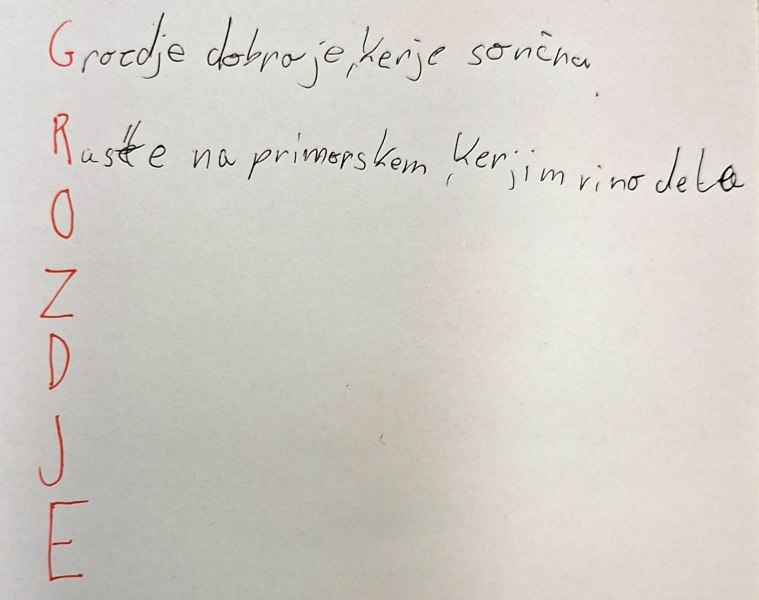 Grozdje dobro je, ker je sončna.
Raste na primorskem, ker jim vino dela
O
Z
D
J
E